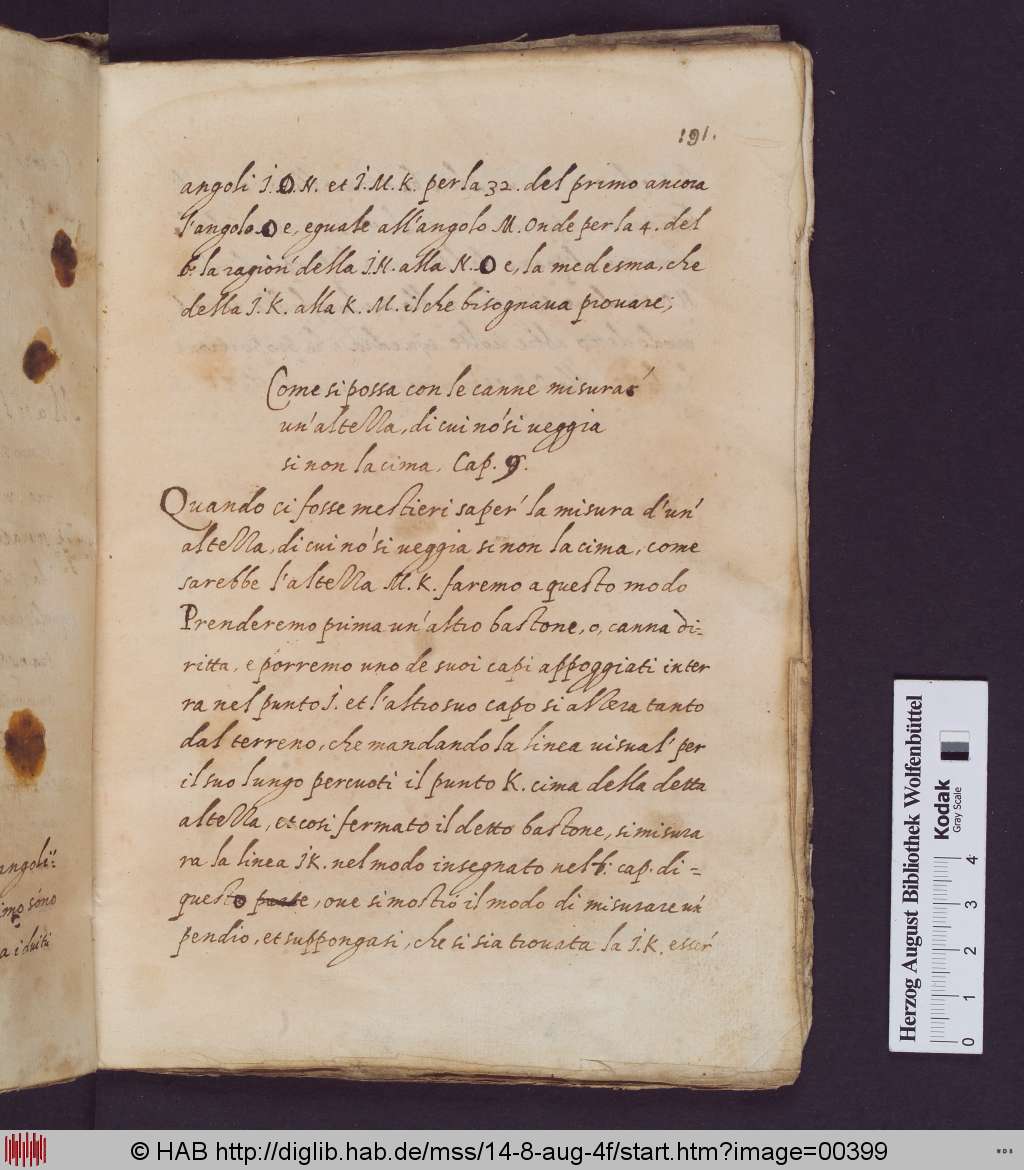 191.
angoli I.O.N. et I.M.K. per la 32. del primo ancora
l'angolo O e, eguale all'angolo M. Onde per la 4. del
6. la ragion' della I.N. alla N.O e, la medesma, che
della I.K. alla K.M. il che bisognava provare;
Come si possa con le canne misurar'
un'altezza, di cui nó si veggia
si non la cima. Cap. 9.
Quando ci fosse mestieri saper' la misura d'un'
altezza, di cui nó si veggia si non la cima, come
sarebbe l'altezza M.K. faremo a questo modo
Prenderemo prima un'altro bastone, o, canna di=
ritta, e porremo uno de suoi capi appoggiati inter
ra nel punto I. et l'altro suo capo si alzera tanto
dal terreno, che mandando la linea uisual' per
il suo lungo percuoti il punto K. cima della detta
altezza, et cosi fermato il detto bastone, si misura
ra la linea IK. nel modo insegnato nel 6: cap. di=
questo parte, oue si mostró il modo di misurare un'
pendio, et suppongasi, che si sia trouata la I.K. esser'
angoli
imo sóno
a i duiti
Herzog August Bibliothek Wolfenbüttel
Kodak
Gray Scale
0 1 2 3 4
© HAB http://diglib.hab.de/mss/14-8-aug-4f/start.htm?image=00399